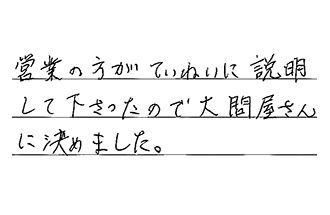 営業の方がていねいに説明
して下さったので大問屋さん
に決めました。